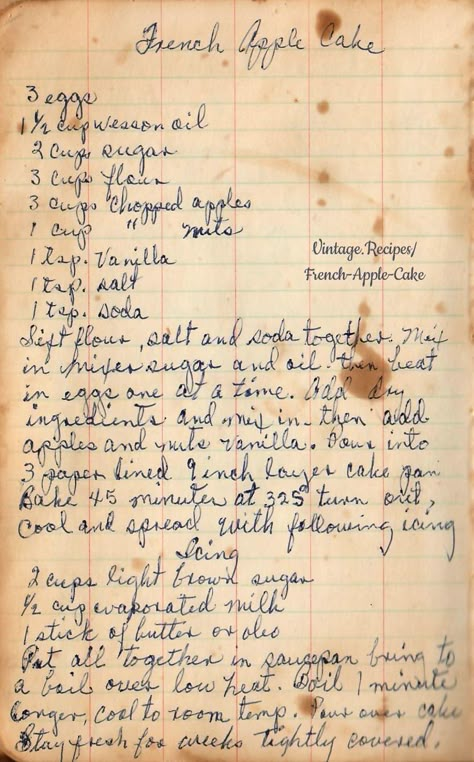 French Apple Cake
3 eggs
1 1/2 cup Wesson oil
2 cups sugar
3 cups flour
3 cups Chopped apples
1 cup " nuts
1 tsp. Vanilla
1 tsp. salt
1 tsp. soda
Vintage.Recipes/
French-Apple-Cake
Sift flour, salt and soda together. Mix
in mixer sugar and oil. then beat
in eggs one at a time. Add dry
ingredients and mix in. then add
apples and nuts Vanilla. Pour into
3 paper lined 9 inch layer cake pan
Bake 45 minutes at 325° turn out,
Cool and spread with following icing
Icing
2 cups light brown sugar
1/2 cup evaporated milk
1 stick of butter or oleo
Put all together in saucepan bring to
a boil over low heat. Boil 1 minute
longer, cool to room temp. Pour over cake
Stay fresh for weeks tightly covered.